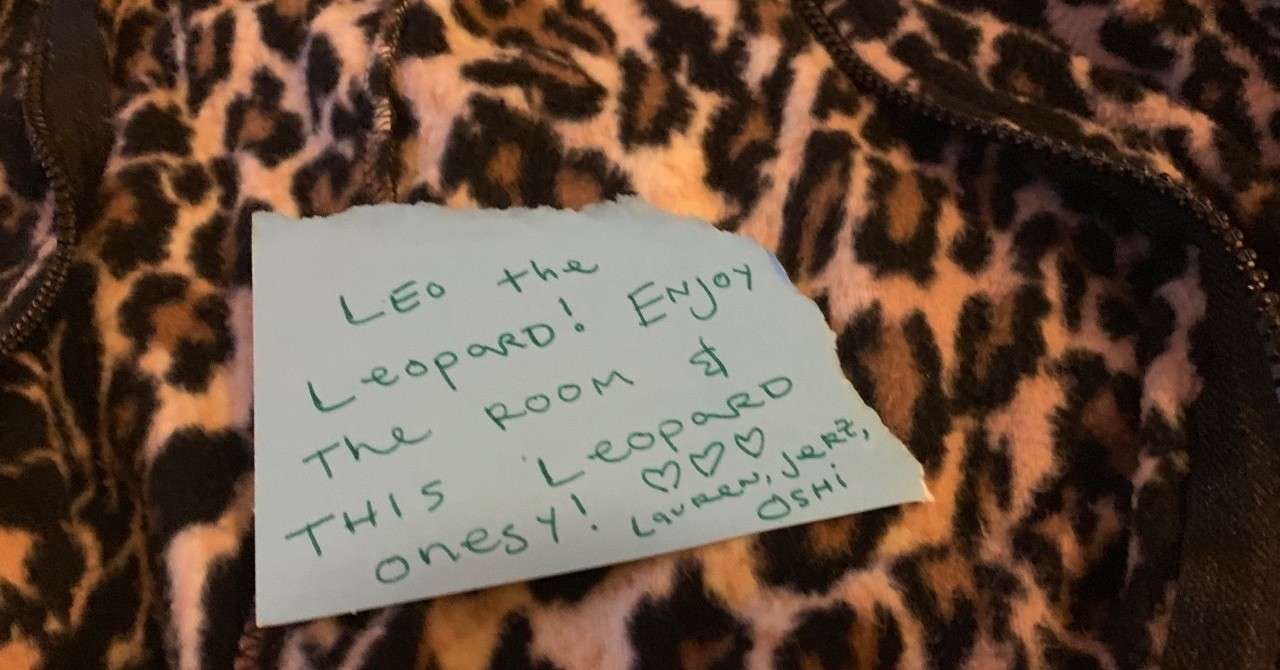 LEO the
LeopARD! ENJOY
The ROOM &
THIS LeopARD
onesy! ♡♡♡
LAUREN, JERZ,
OSHi